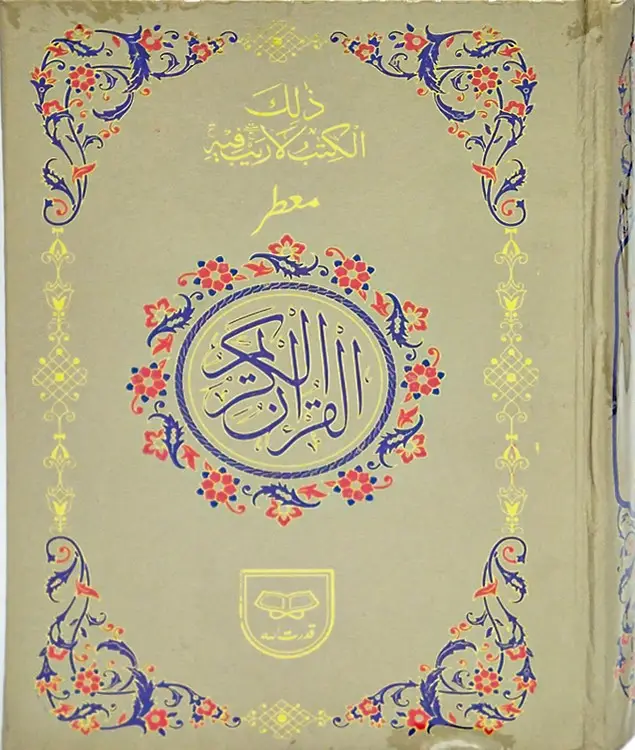 ذٰلِكَ
الْكِتٰبُ لَا رَيْبَ فِيْهِ
معطر
القرآن الكريم
قدرت اللہ